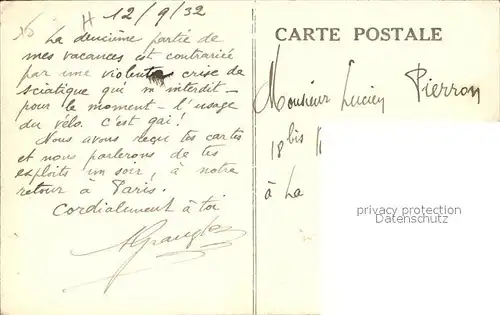 12/9/32
La deuxième partie de
mes vacances est contrariée
par une violente crise de
sciatique qui m'interdit -
pour le moment - l'usage
du vélo. C'est gai!
Nous avons reçu tes cartes
et nous parlerons de tes
exploits un soir, à notre
retour à Paris.
Cordialement à toi
CARTE POSTALE
Monsieur Lucien Pierron
18 bis
à La
privacy protection
www.delcampe.net